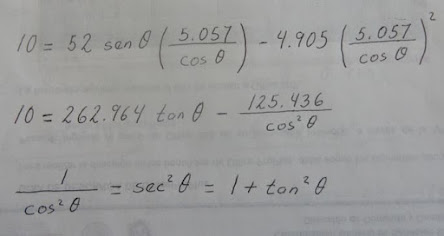 10 = 52 sen θ (5.057 / cos θ) - 4.905 (5.057 / cos θ)²
10 = 262.964 tan θ - 125.436 / cos² θ
1 / cos² θ = sec² θ = 1 + tan² θ